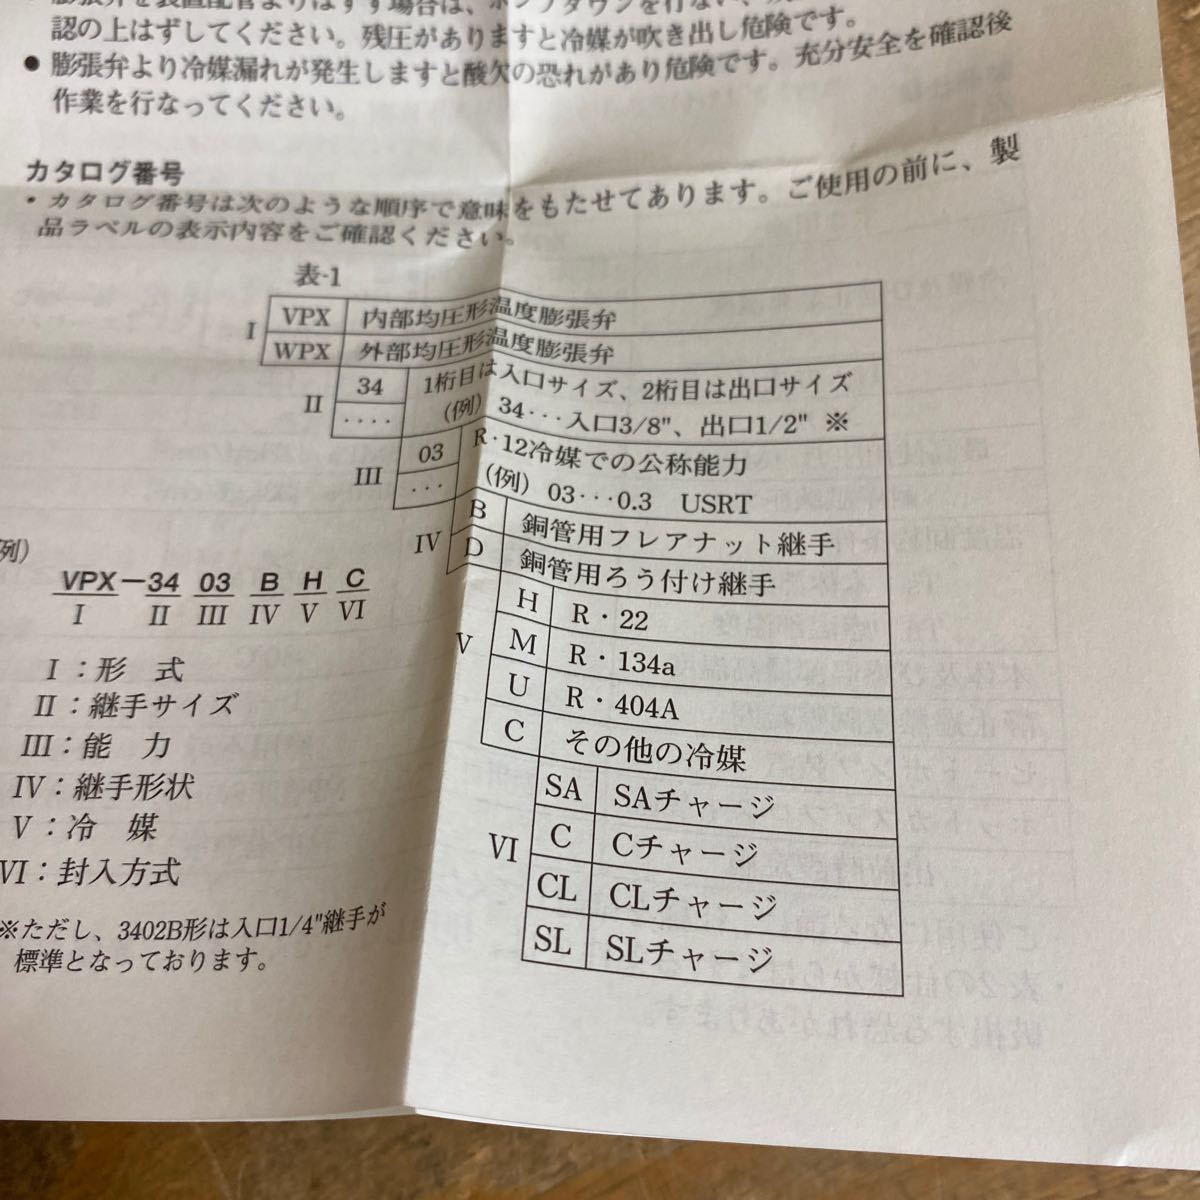 膨張弁を装置配管よりはずす場合は、ポンプダウンを行ない、
認の上はずしてください。残圧がありますと冷媒が吹き出し危険です。
● 膨張弁より冷媒漏れが発生しますと酸欠の恐れがあり危険です。充分安全を確認後
作業を行なってください。
カタログ番号
・カタログ番号は次のような順序で意味をもたせてあります。ご使用の前に、製
品ラベルの表示内容をご確認ください。
表-1
I VPX 内部均圧形温度膨張弁
WPX 外部均圧形温度膨張弁
II 34 1桁目は入口サイズ、2桁目は出口サイズ
‥‥ (例) 34・・・入口3/8"、出口1/2" ※
III 03 R・12冷媒での公称能力
… (例) 03・・・0.3 USRT
IV B 銅管用フレアナット継手
D 銅管用ろう付け継手
V H R・22
M R・134a
U R・404A
C その他の冷媒
VI SA SAチャージ
C Cチャージ
CL CLチャージ
SL SLチャージ
例)
VPX－34 03 B H C
I II III IV V VI
I：形 式
II：継手サイズ
III：能 力
IV：継手形状
V：冷 媒
VI：封入方式
※ただし、3402B形は入口1/4"継手が
標準となっております。